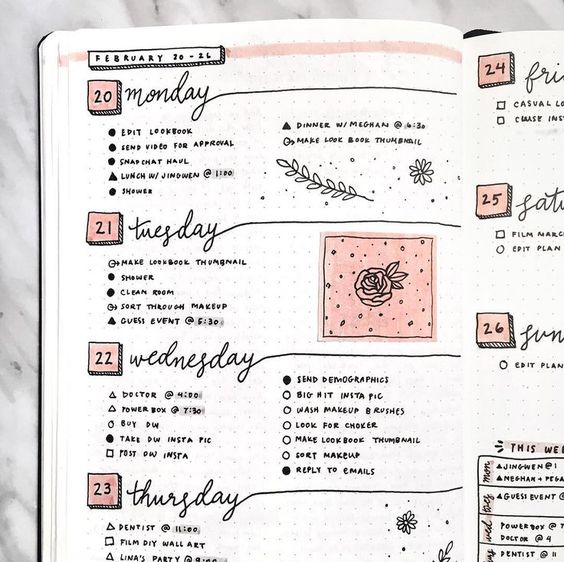 FEBRUARY 20 - 26
20 monday
EDIT LOOKBOOK
SEND VIDEO FOR APPROVAL
SNAPCHAT HAUL
LUNCH W/ JINGWEN @ 1:00
SHOWER
DINNER W/ MEGHAN @ 6:30
MAKE LOOK BOOK THUMBNAIL
21 tuesday
MAKE LOOKBOOK THUMBNAIL
SHOWER
CLEAN ROOM
SORT THROUGH MAKEUP
GUESS EVENT @ 5:30
22 wednesday
DOCTOR @ 4:00
POWERBOX @ 7:30
BUY DW
TAKE DW INSTA PIC
POST DW INSTA
SEND DEMOGRAPHICS
BIG HIT INSTA PIC
WASH MAKEUP BRUSHES
LOOK FOR CHOKER
MAKE LOOKBOOK THUMBNAIL
SORT MAKEUP
REPLY TO EMAILS
23 thursday
DENTIST @ 11:00
FILM DIY WALL ART
LINA'S PARTY @
24 fri
CASUAL LO
INS
25 satu
FILM MARC
EDIT PLAN
26 sun
EDIT PLAN
THIS WEE
mon
JINGWEN @ 1
MEGHAN + PEGA
tues
GUESS EVENT @
wed
POWERBOX @ 7
DOCTOR 4
DENTIST @ 11